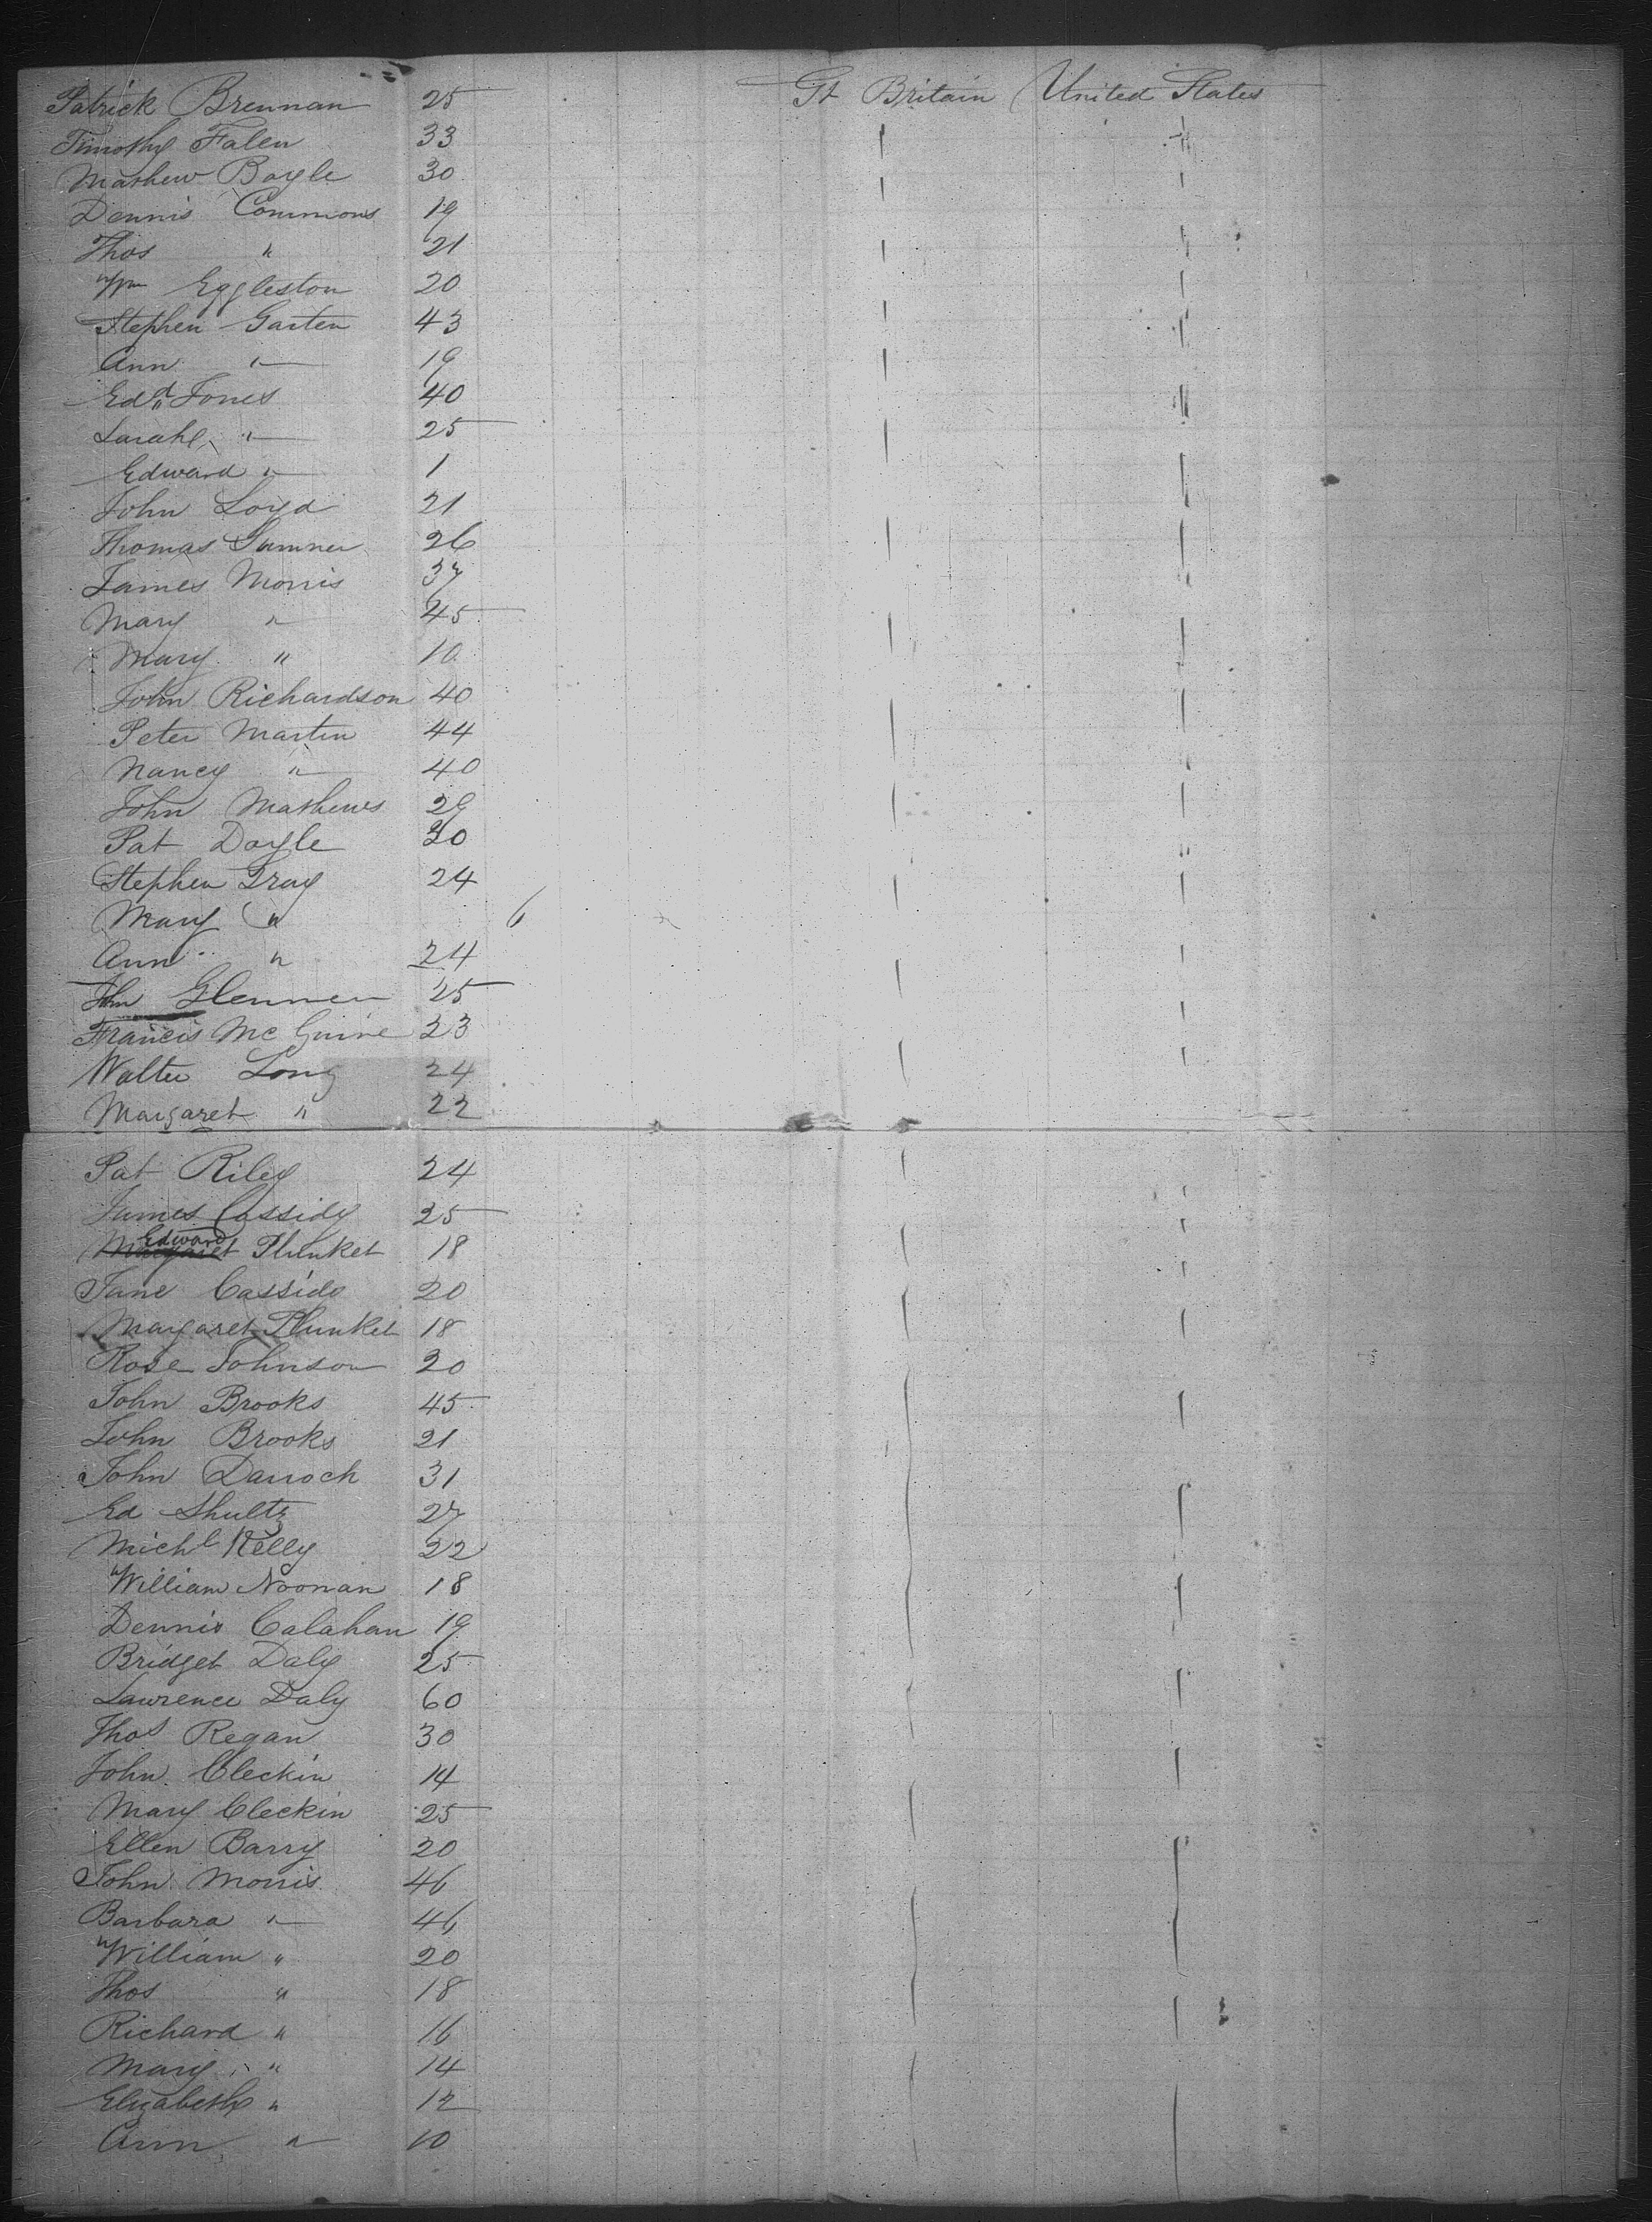 Patrick Brennan 25 Gt Britain United States
Timothy Falen 33
Mathew Boyle 30
Dennis Commons 19
Thos " 21
Wm Eggleston 20
Stephen Garten 43
Ann " 19
Edd Jones 40
Sarah " 25
Edward " 1
John Loyd 21
Thomas Sumner 26
James Morris 37
Mary " 45
Mary " 10
John Richardson 40
Peter Martin 44
Nancy " 40
John Mathews 29
Pat Doyle 30
Stephen Gray 24
Mary " 6
Ann " 24
Jhn Glennen 25
Francis McGuire 23
Walter Long 24
Margaret " 22
Pat Riley 24
James Cassidy 25
Edward
Margaret Plunket 18
Jane Cassidy 20
Margaret Plunket 18
Rose Johnson 20
John Brooks 45
John Brooks 21
John Darroch 31
Ed Shultz 27
Michl Kelly 22
William Noonan 18
Dennis Calahan 19
Bridget Daly 25
Lawrence Daly 60
Thos Regan 30
John Cleckin 14
Mary Cleckin 25
Ellen Barry 20
John Morris 46
Barbara " 46
William " 20
Thos " 18
Richard " 16
Mary " 14
Elizabeth " 12
Ann " 10